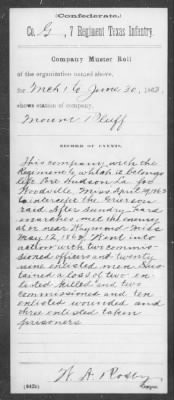 (Confederate.)
Co. G, 7 Regiment Texas Infantry.
Company Muster Roll
of the organization named above,
for Mch 1 to June 30, 1863.
shows station of company,
Mount Pluff
RECORD OF EVENTS.
This company with the
Regiment to which it belongs
left Port Hudson La for
Woodville Miss April 29, 1863
to intercept the Grierson
raid After sundry
marches met the enemy
at or near Raymond Miss
May 12, 1863 Went into
action with two commis-
sioned officers and twenty
nine enlisted men Sus-
tained a loss of two en-
listed killed and two
commissioned and ten
enlisted wounded and
three enlisted taken
prisoners
W. A. Rosby
(642s)
Copyist.